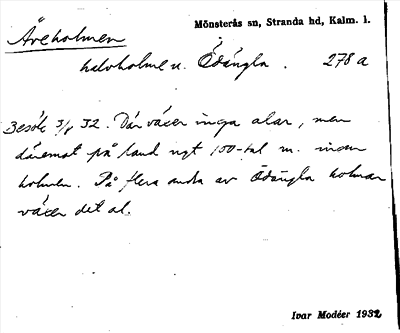 Mönsterås sn, Stranda hd, Kalm. l.
Åveholmen
halvholme u. Ödängla. 278a
Besök 3/8 32. Där växer inga alar, men
däremot på land ngt 100-tal m. innan
holmen. På flera andra av Ödängla holmar
växer det al.
Ivar Modéer 1932